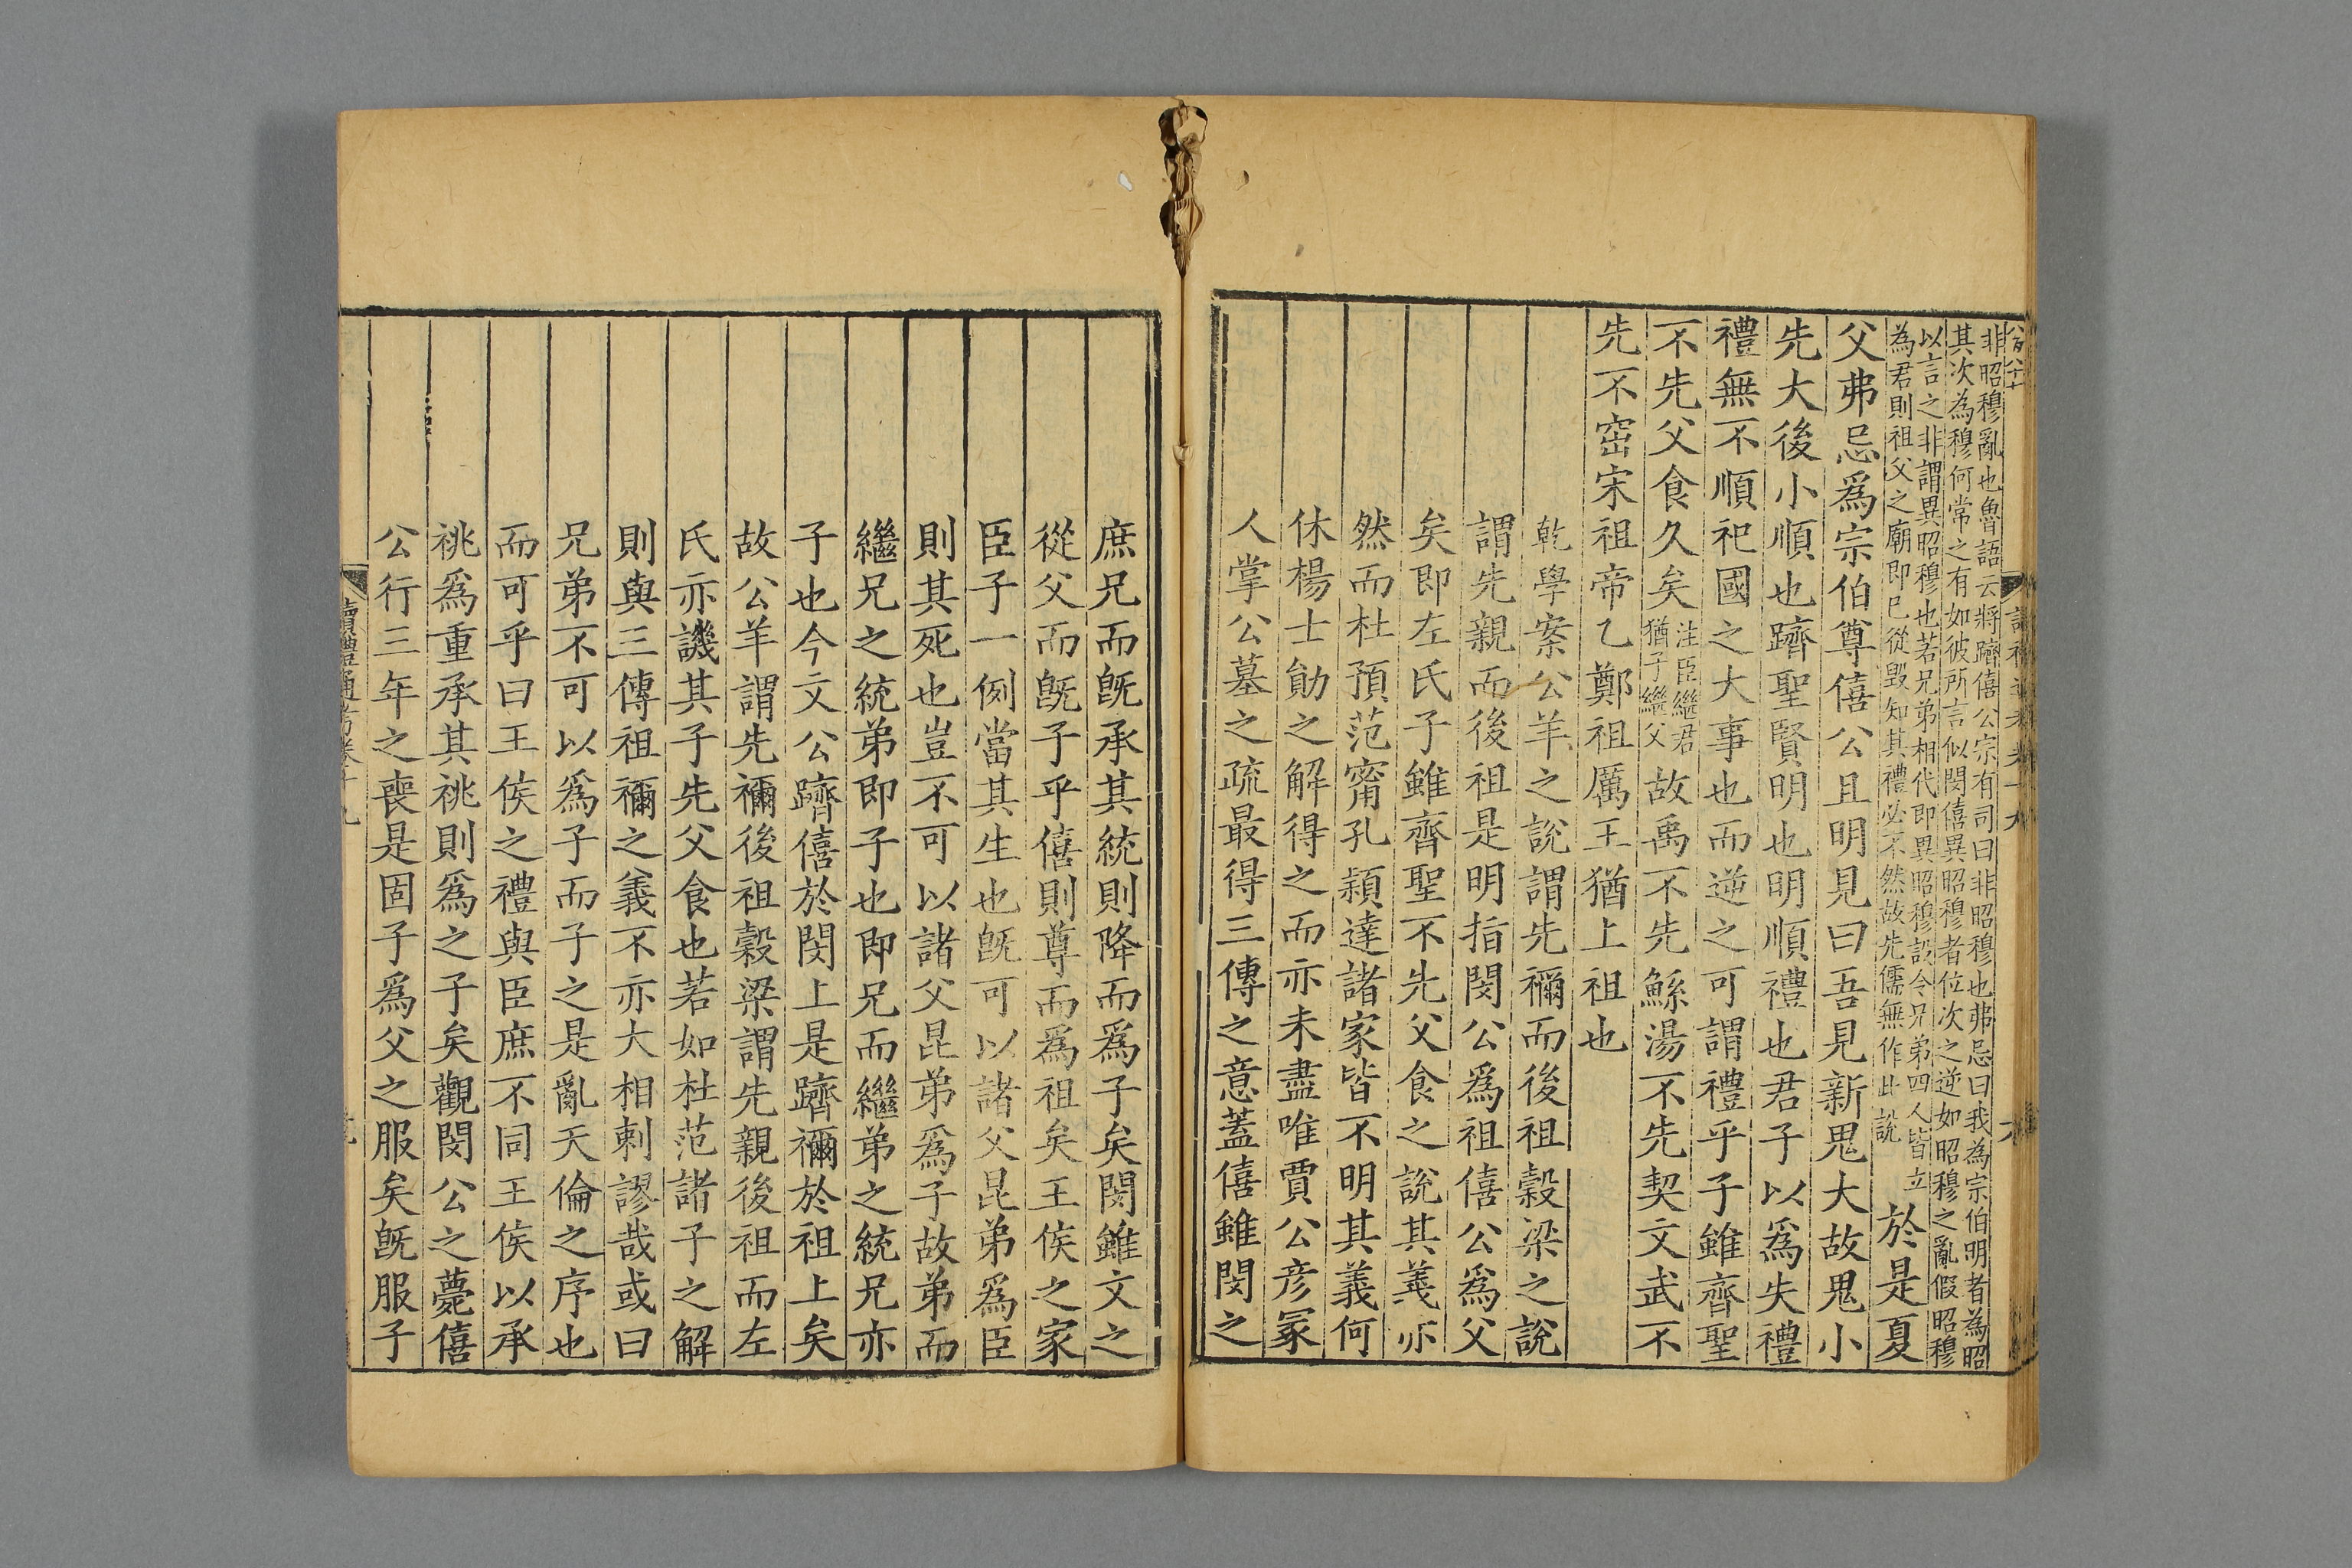 非昭穆亂也魯語云將躋僖公宗有司曰非昭穆也弗忌曰我為宗伯明者為昭
其次為穆何常之有如彼所言似閔僖異昭穆者位次之逆如昭穆之亂假昭穆
以言之非謂異昭穆也若兄弟相代即異昭穆設令兄弟四人皆立
為君則祖父之廟即已從毀知其禮必不然故先儒無作此說
於是夏
父弗忌爲宗伯尊僖公且明見曰吾見新鬼大故鬼小
先大後小順也躋聖賢明也明順禮也君子以爲失禮
禮無不順祀國之大事也而逆之可謂禮乎子雖齊聖
不先父食久矣
注臣繼君
猶子繼父
故禹不先鯀湯不先契文武不
先不窋宋祖帝乙鄭祖厲王猶上祖也
乾學案公羊之說謂先禰而後祖穀梁之說
謂先親而後祖是明指閔公爲祖僖公爲父
矣即左氏子雖齊聖不先父食之說其義亦
然而杜預范甯孔穎達諸家皆不明其義何
休楊士勛之解得之而亦未盡唯賈公彦冢
人掌公墓之疏最得三傳之意蓋僖雖閔之
庶兄而旣承其統則降而爲子矣閔雖文之
從父而旣子乎僖則尊而爲祖矣王侯之家
臣子一例當其生也旣可以諸父昆弟爲臣
則其死也豈不可以諸父昆弟爲子故弟而
繼兄之統弟即子也即兄而繼弟之統兄亦
子也今文公躋僖於閔上是躋禰於祖上矣
故公羊謂先禰後祖穀梁謂先親後祖而左
氏亦譏其子先父食也若如杜范諸子之解
則與三傳祖禰之義不亦大相刺謬哉或曰
兄弟不可以爲子而子之是亂天倫之序也
而可乎曰王侯之禮與臣庶不同王侯以承
祧爲重承其祧則爲之子矣觀閔公之薨僖
公行三年之喪是固子爲父之服矣旣服子
讀禮通考卷十九